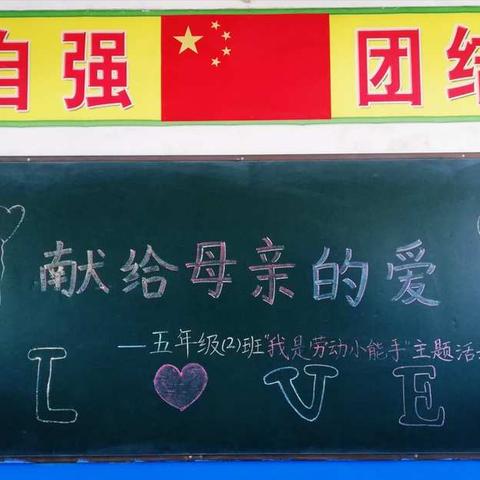 自强 团结
献给母亲的爱
——五年级(2)班"我是劳动小能手"主题活
L VE